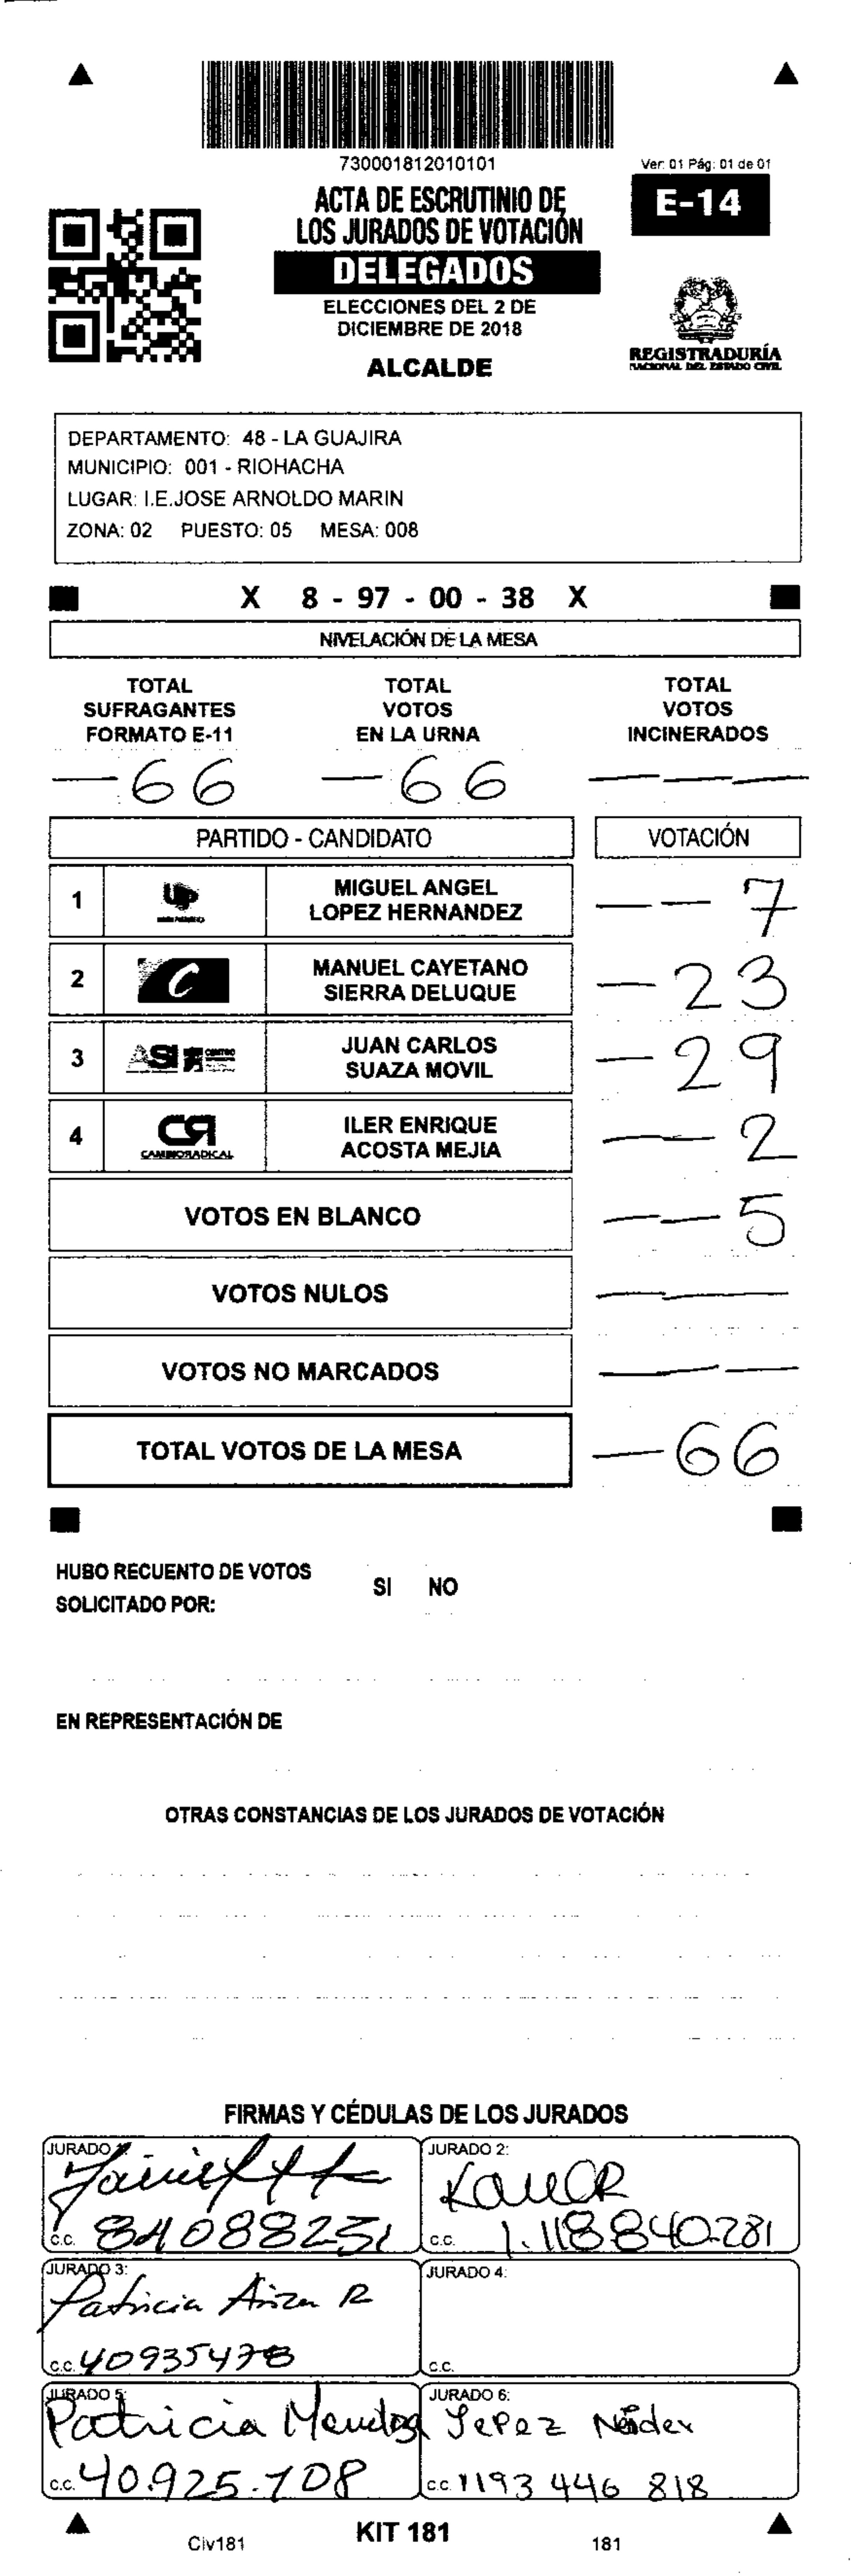 730001812010101
Ver: 01 Pág: 01 de 01
ACTA DE ESCRUTINIO DE
LOS JURADOS DE VOTACIÓN
E-14
DELEGADOS
ELECCIONES DEL 2 DE
DICIEMBRE DE 2018
ALCALDE
REGISTRADURÍA
NACIONAL DEL ESTADO CIVIL
DEPARTAMENTO: 48 - LA GUAJIRA
MUNICIPIO: 001 - RIOHACHA
LUGAR: I.E.JOSE ARNOLDO MARIN
ZONA: 02 PUESTO: 05 MESA: 008
X 8 - 97 - 00 - 38 X
NIVELACIÓN DE LA MESA
TOTAL SUFRAGANTES FORMATO E-11
TOTAL VOTOS EN LA URNA
TOTAL VOTOS INCINERADOS
— 66 — 66 — — —
PARTIDO - CANDIDATO VOTACIÓN
1 UP MIGUEL ANGEL LOPEZ HERNANDEZ — — 7
2 C MANUEL CAYETANO SIERRA DELUQUE — 23
3 ASI JUAN CARLOS SUAZA MOVIL — 29
4 CR CAMBIO RADICAL ILER ENRIQUE ACOSTA MEJIA — — 2
VOTOS EN BLANCO — — 5
VOTOS NULOS — — —
VOTOS NO MARCADOS — — —
TOTAL VOTOS DE LA MESA — 66
HUBO RECUENTO DE VOTOS SI NO
SOLICITADO POR:
EN REPRESENTACIÓN DE
OTRAS CONSTANCIAS DE LOS JURADOS DE VOTACIÓN
FIRMAS Y CÉDULAS DE LOS JURADOS
JURADO 1:
c.c. 84088251
JURADO 2:
c.c. 1.118840.281
JURADO 3:
Patricia Ariza R
c.c. 40935478
JURADO 4:
c.c.
JURADO 5:
Patricia Mendoza
c.c. 40.925.708
JURADO 6:
Yepez Neider
c.c. 1193 446 818
Civ181
KIT 181
181